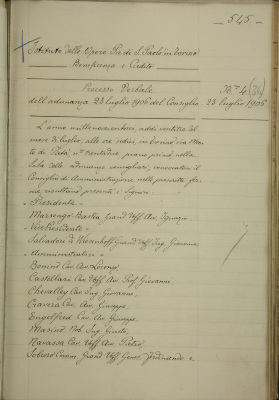 - 545 -
Istituto delle Opere Pie di S. Paolo in Torino
Beneficenza e Credito
Processo Verbale
N.° 4 (34)
dell'adunanza 23 luglio 1906 del Consiglio
23 luglio 1906
L'anno millenovecentosei, addì ventitre del
mese di luglio, alle ore sedici, in Torino, via Mon-
te di Pietà, n° trentadue, piano primo nella
Sala delle adunanze consigliari, convocatosi il
Consiglio di Amministrazione nelle prescritte for-
me, risultano presenti i Signori:
- Presidente -
Marsengo Bastia, Grand Uff. Avv. Ignazio.
- Vicepresidente -
Salvadori di Wiesenhoff Grand Uff. Ing. Giacomo
- Amministratori -
Bonino Cav. Avv. Lorenzo
Castellari Cav. Uff. Avv. Prof. Giovanni
Chevalley Cav. Ing. Giovanni
Craveri Cav. Avv. Giuseppe
Engelfred Cav. Avv. Giuseppe
Masino Nob. Ing. Giulio
Navassa Cav. Uff. Avv. Pietro
Sobrero Comm. Grand Uff. Gener. Ferdinando e